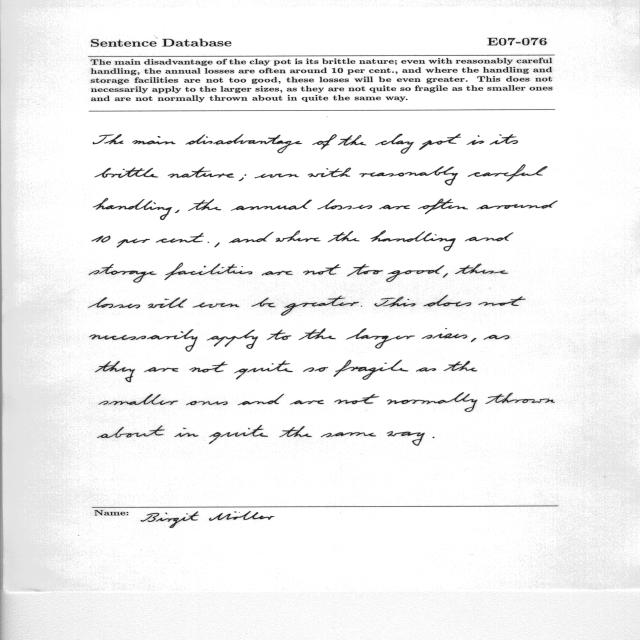 Sentence Database E07-076
The main disadvantage of the clay pot is its brittle nature; even with reasonably careful
handling, the annual losses are often around 10 per cent., and where the handling and
storage facilities are not too good, these losses will be even greater. This does not
necessarily apply to the larger sizes, as they are not quite so fragile as the smaller ones
and are not normally thrown about in quite the same way.
The main disadvantage of the clay pot is its
brittle nature; even with reasonably careful
handling, the annual losses are often around
10 per cent., and where the handling and
storage facilities are not too good, these
losses will even be greater. This does not
necessarily apply to the larger sizes, as
they are not quite so fragile as the
smaller ones and are not normally thrown
about in quite the same way.
Name: Birgit Möller